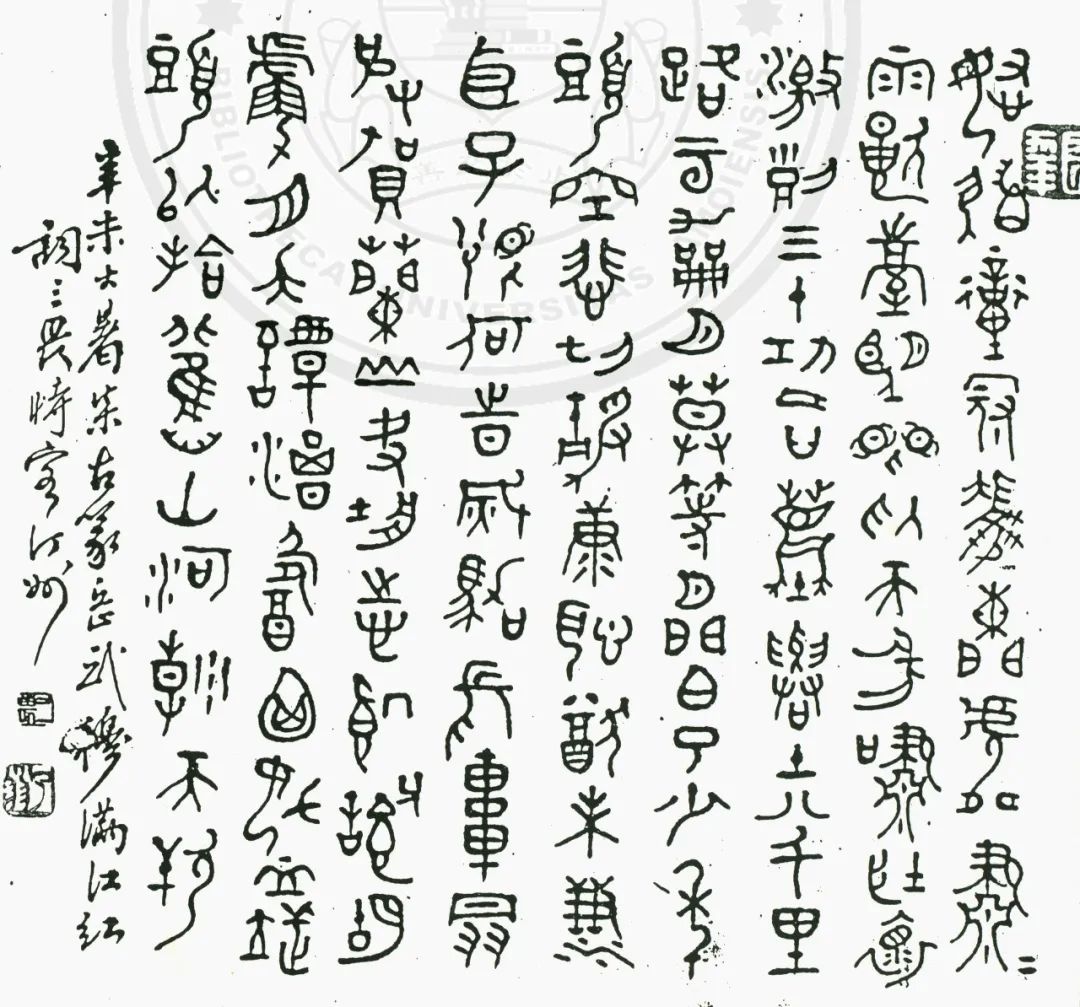 怒髮衝冠憑闌處瀟瀟
雨歇臺望眼仰天長嘯壯懷
激烈三十功名塵與土八千里
路雲和月莫等閒白了少年
頭空悲切靖康恥猶未雪
臣子恨何時滅駕長車踏
破賀蘭山缺壯志飢餐胡
虜肉笑談渴飲匈奴血待從
頭收拾舊山河朝天闕
辛未大暑集古篆岳武穆滿江紅
詞三畏時客汀州